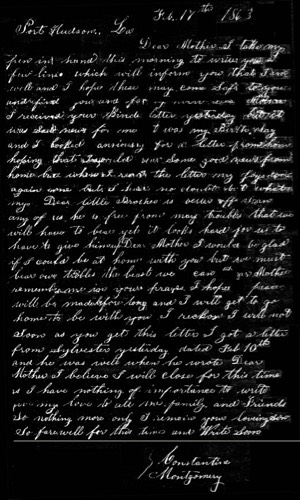 Feb. 17th 1863
Port Hudson, La
Dear Mother I take my
pen in hand this morning to write you a
few lines which will inform you that I am
well and I hope these may come safe to you
and find you and
I received your kind letter yesterday but it
was sad news for me it was my Birth day
and I looked anxiously for a letter from home
hoping that I would hear some good news from
home but when I read the letter my
again come but I have no doubt but
my Dear little Brother is better off than
any of us he is free from many troubles that we
will have to bear yet it looks hard for us to
have to give him up Dear Mother I would be glad
if I could be at home with you but we must
bear our trobles the best we can Mother
remember me in your prayers I hope peace
will be made before long and I will get to go
home to be with you I reckon I will not
soon as you get this letter I got a letter
from Sylvester yesterday dated Feb 10th
and he was well when he wrote Dear
Mother I believe I will close for this time
as I have nothing of importance to write
give my love to all the family and Friends
So nothing more only I remain your loving son
So farewell for this time and Write Soon
Constantine
Montgomery